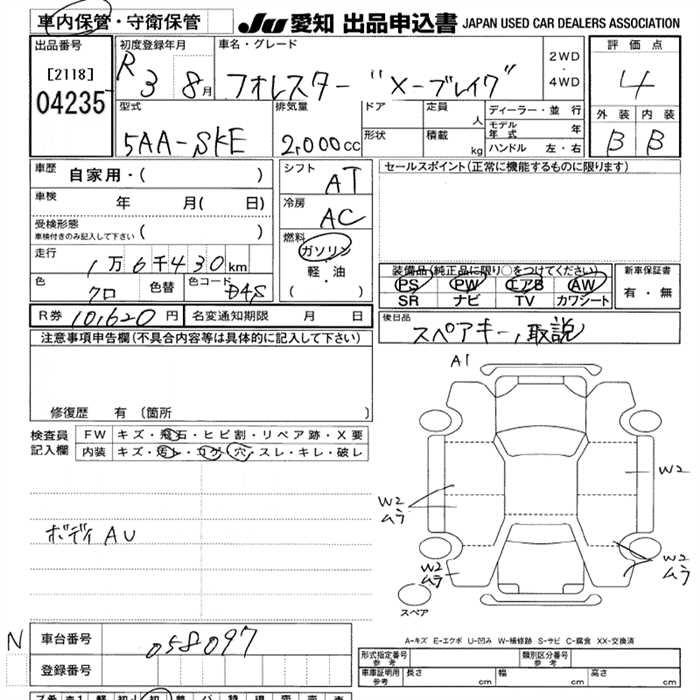 車内保管・守衛保管 JU 愛知 出品申込書 JAPAN USED CAR DEALERS ASSOCIATION
出品番号 初度登録年月 車名・グレード 評価点
[2118] R 3 8月 フォレスター "X-ブレイク" 2WD・4WD 4
04235 外装 内装
型式 排気量 ドア 定員 人 ディーラー・並行 B B
5AA-SKE 2,000cc 形状 積載 kg モデル年式 年
ハンドル 左・右
車歴 自家用・( ) シフト AT セールスポイント(正常に機能するものに限ります)
車検 年 月( 日) 冷房 AC
受検形態
車検付きのみ記入して下さい ( ) 燃料 ガソリン
走行 1万6千430km 軽・油 装備品(純正品に限り○をつけてください) 新車保証書
色 クロ 色替 色コード D4S ( ・ ) PS PW エアB AW 有・無
SR ナビ TV カワシート
R券 10,620円 名変通知期限 月 日 後日品
注意事項申告欄(不具合内容等は具体的に記入して下さい) スペアキー,取説
A1
修復歴 有(箇所 )
検査員 FW キズ・飛石・ヒビ割・リペア跡・X要
記入欄 内装 キズ・汚レ・コゲ・穴・スレ・キレ・破レ
W2
W2
ムラ
ボディAU
W2
ムラ
W2
ムラ
スペア
A-キズ E-エクボ U-凹み W-補修跡 S-サビ C-腐食 XX-交換済
N 車台番号 058097
登録番号 形式指定番号 参考 類別区分番号 参考
車庫証明 参考 長さ cm 幅 cm 高さ cm